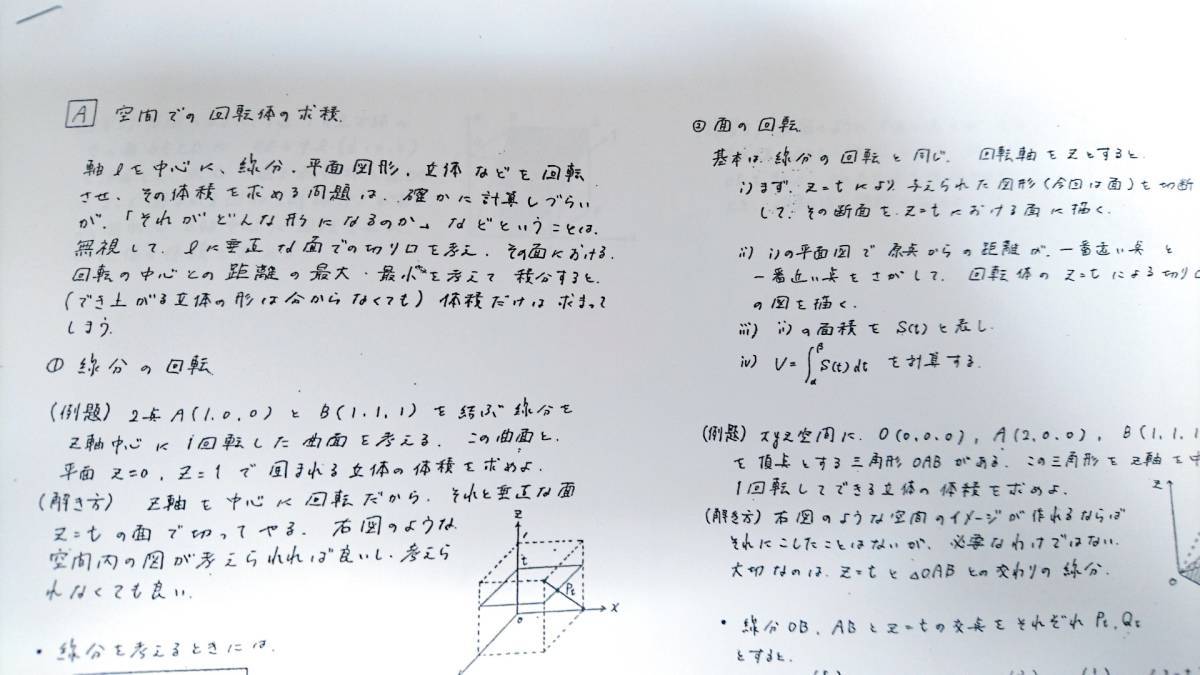 A 空間での回転体の求積
軸lを中心に、線分、平面図形、立体などを回転
させ、その体積を求める問題は、確かに計算しづらい
が、「それがどんな形になるのか」などということは、
無視して、lに垂直な面での切り口を考え、その面における
回転の中心との距離の最大・最小を考えて積分すると、
(でき上がる立体の形は分からなくても)体積だけは求まって
しまう。
① 線分の回転
(例題) 2点A(1,0,0)とB(1,1,1)を結ぶ線分を
Z軸中心に1回転した曲面を考える。この曲面と、
平面Z=0, Z=1で囲まれる立体の体積を求めよ。
(解き方) Z軸を中心に回転だから、それと垂直な面
Z=tの面で切ってやる。右図のような
空間内の図が考えられれば良いし、考えら
れなくても良い。
z
1
t
Pt
0
x
・線分を考えるときには、
② 面の回転
基本は、線分の回転と同じ。回転軸をZとすると、
i) まず、Z=tにより与えられた図形(今回は面)を切断
して、その断面を、Z=tにおける面に描く。
ii) i)の平面図で原点からの距離が、一番近い点と
一番近い点をさがして、回転体のZ=tによる切り口
の図を描く。
iii) ii)の面積をS(t)と表し、
iv) V=∫αβ S(t)dt を計算する。
(例題) xyz空間に、O(0,0,0), A(2,0,0), B(1,1,1
を頂点とする三角形OABがある。この三角形をz軸を中
1回転してできる立体の体積を求めよ。
(解き方) 右図のような空間のイメージが作れるならば
それにこしたことはないが、必要なわけではない。
大切なのは、Z=tと△OABとの交わりの線分。
z
0
・線分OB, ABとZ=tの交点をそれぞれPt, Qt
とすると、